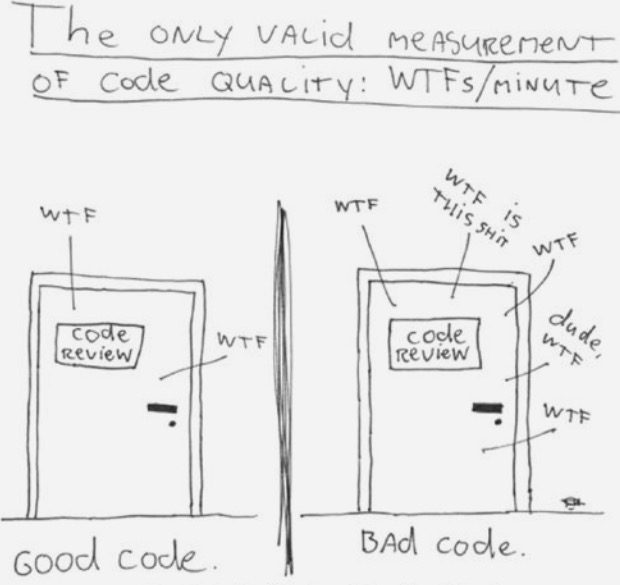 The ONLY VALid MEASUREMENT
OF Code QUALITY: WTFs/MINUTE
WTF
Code
REVIEW
WTF
GOOD Code.
WTF
WTF is
THiS SHiT
WTF
Code
REVIEW
dude,
WTF
WTF
BAd Code.